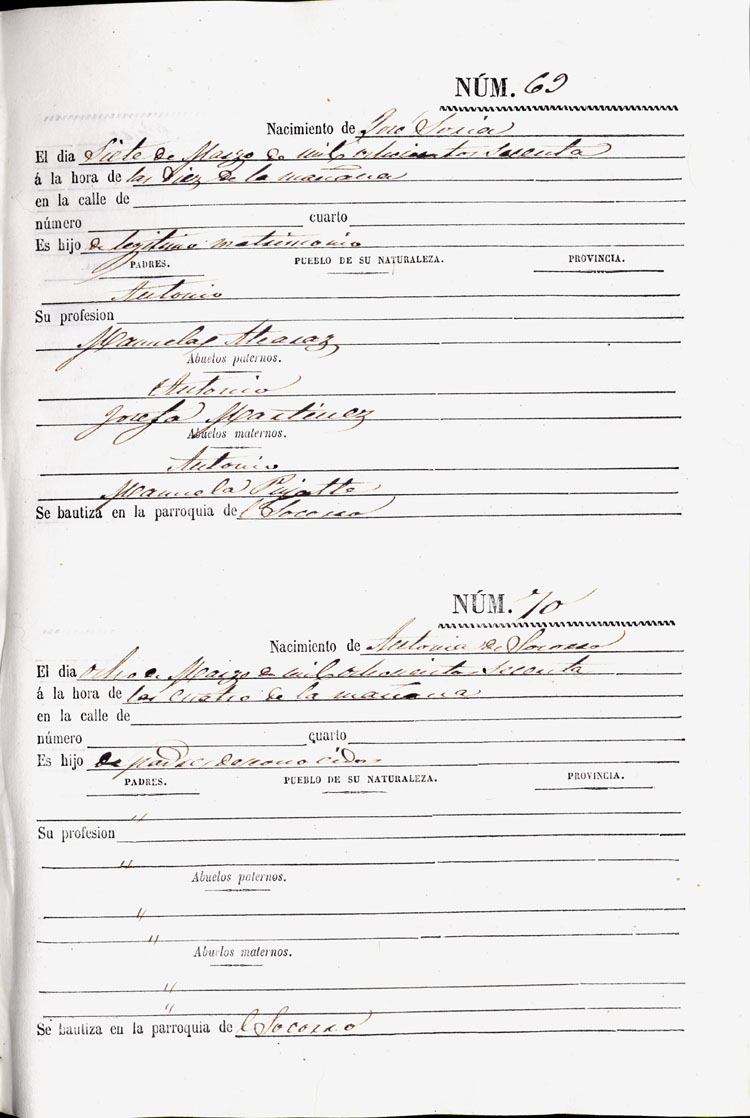 NÚM. 69
Nacimiento de José Soria
El dia Siete de Marzo de mil ochocientos sesenta
á la hora de las Diez de la mañana
en la calle de
número cuarto
Es hijo de legitimo matrimonio
PADRES. PUEBLO DE SU NATURALEZA. PROVINCIA.
Antonio
Su profesion
Manuela Alcaraz
Abuelos paternos.
Antonio
Josefa Martinez
Abuelos maternos.
Antonio
Manuela
Se bautiza en la parroquia del Socorro
NÚM. 70
Nacimiento de Antonia de Socorro
El dia ocho de Marzo de mil ochocientos sesenta
á la hora de las cuatro de la mañana
en la calle de
número cuarto
Es hijo de padres desconocidos
PADRES. PUEBLO DE SU NATURALEZA. PROVINCIA.
"
Su profesion
"
Abuelos paternos.
"
"
Abuelos maternos.
"
"
Se bautiza en la parroquia del Socorro